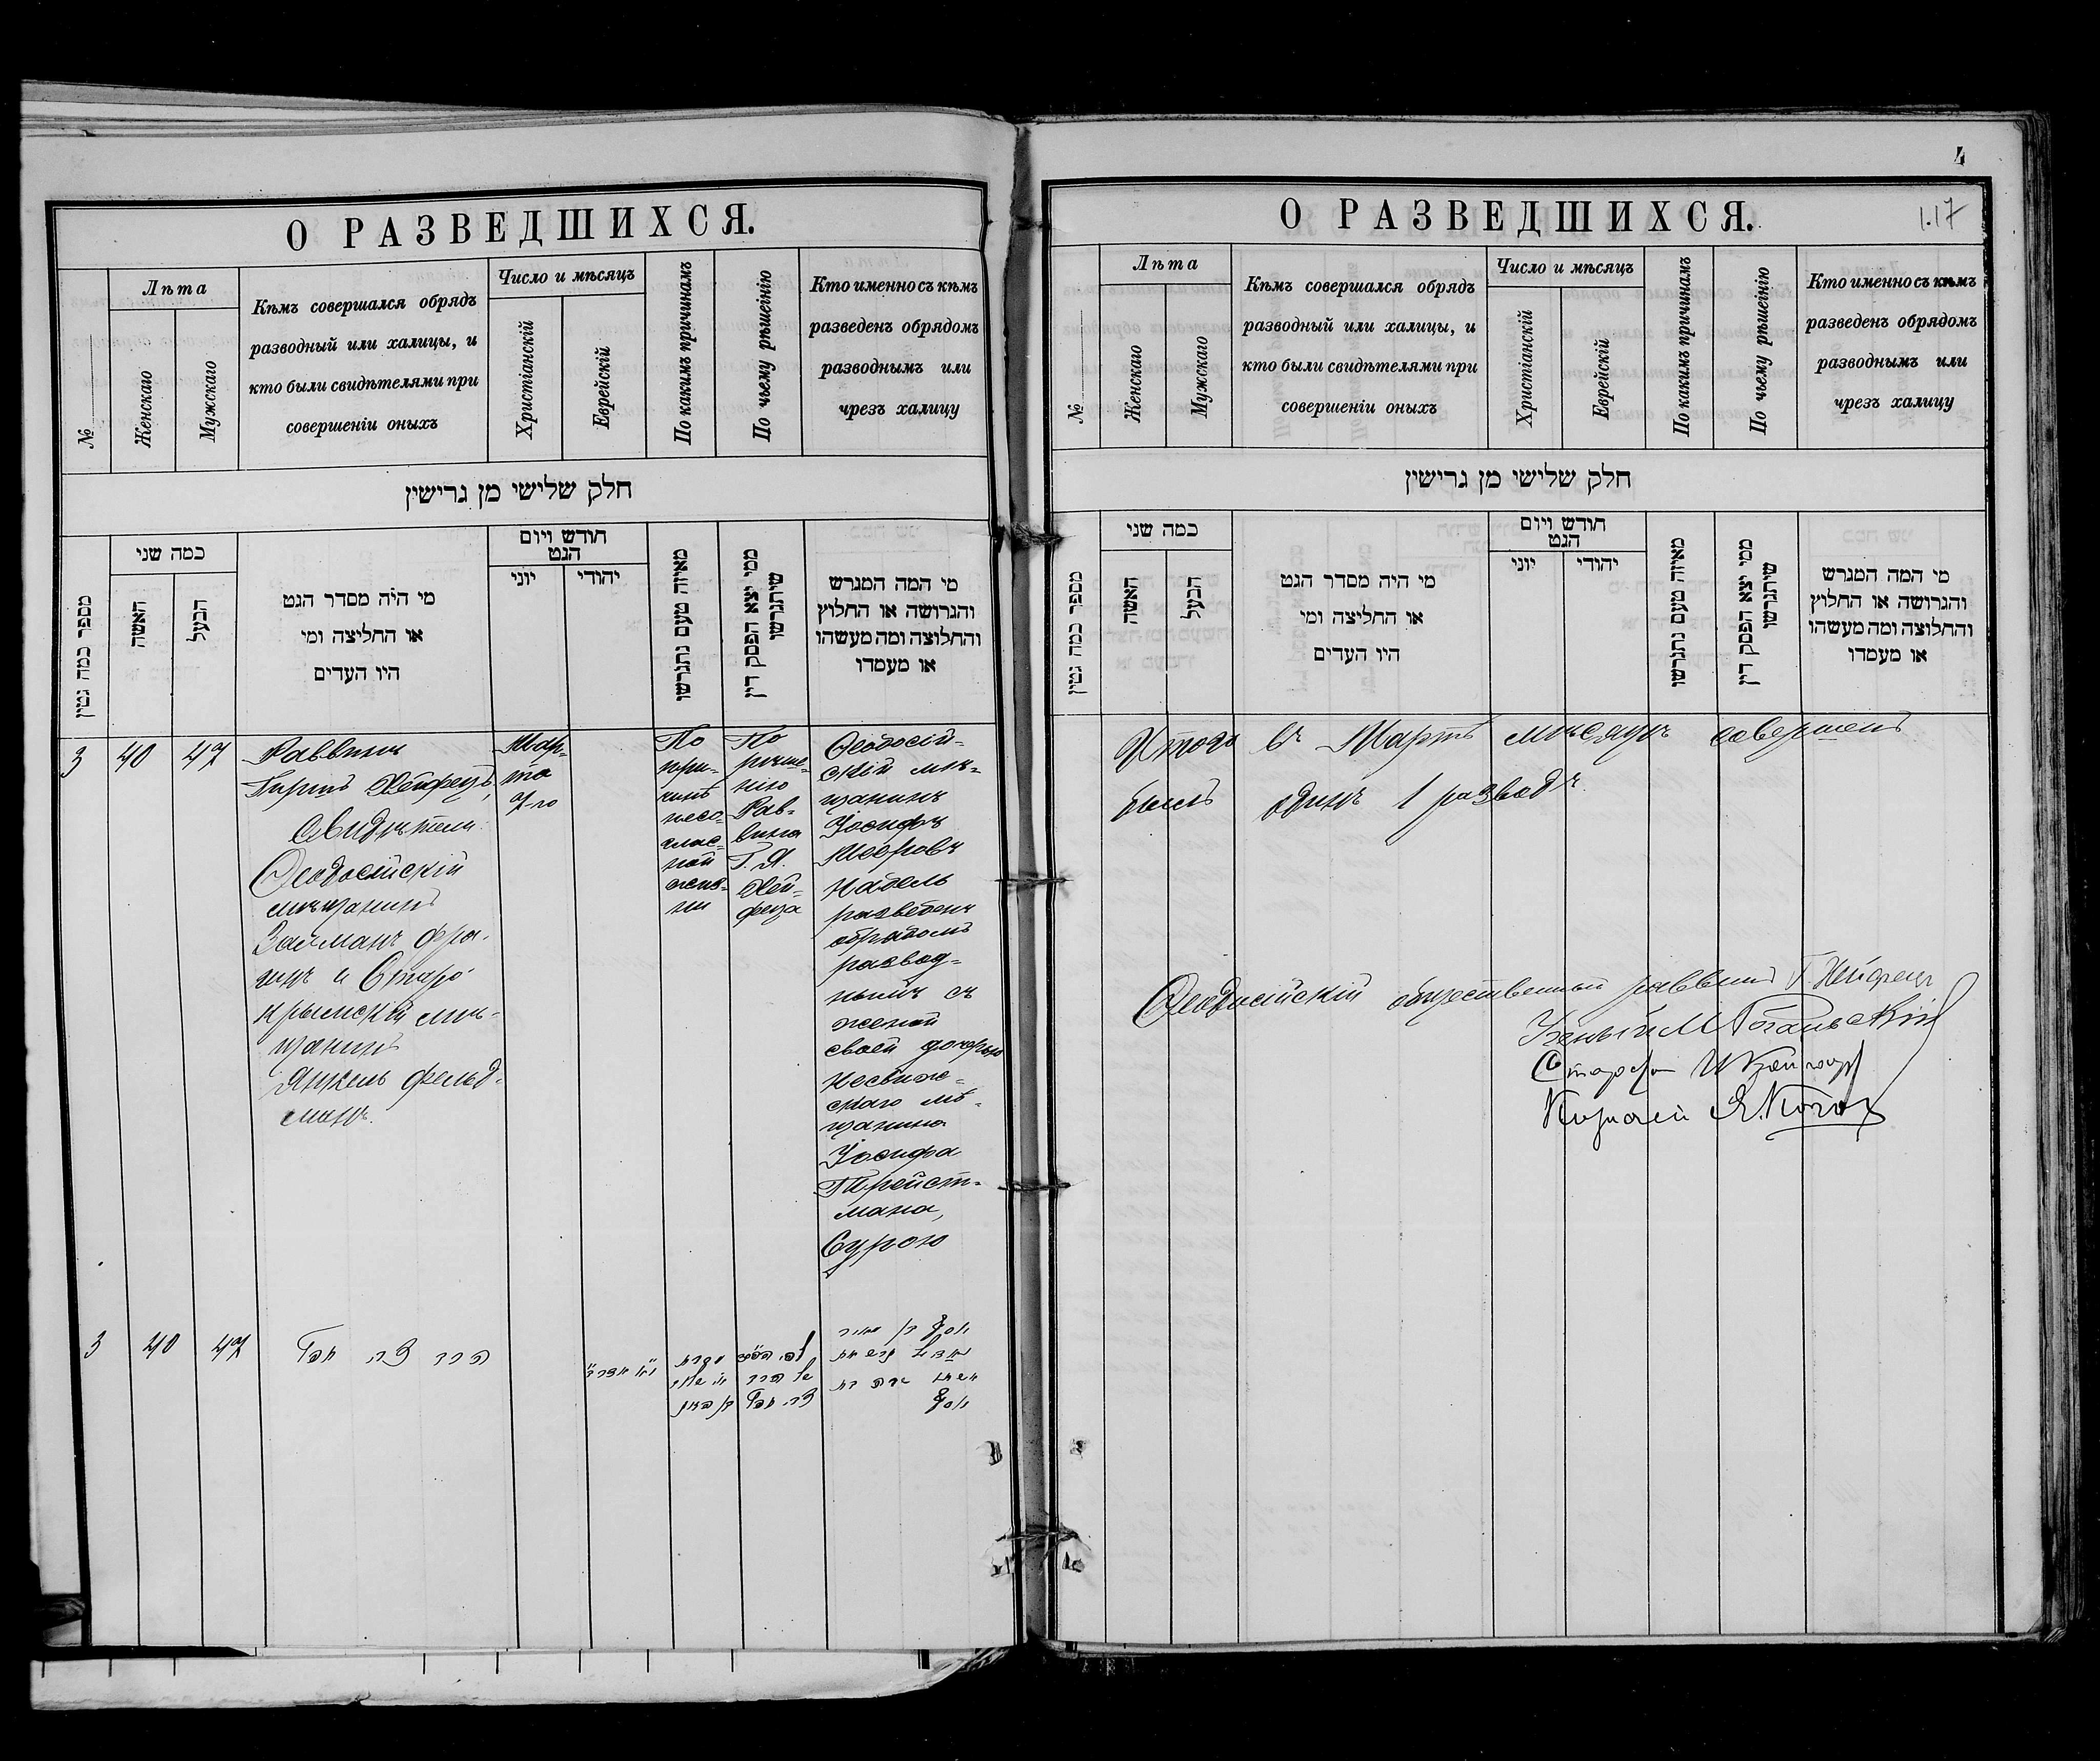 О РАЗВЕДШИХСЯ.
№
Лѣта
Женскаго
Мужскаго
Кѣмъ совершался обрядъ
разводный или халицы, и
кто были свидѣтелями при
совершеніи оныхъ
Число и мѣсяцъ
Христіанскій
Еврейскій
По какимъ причинамъ
По чьему рѣшеінію
Кто именно съ кѣмъ
разведенъ обрядомъ
разводнымъ или
чрезъ халицу
חלק שלישי מן גרישין
מספר כמה גטין
כמה שני
האשה
הבעל
מי היה מסדר הגט
או החליצה ומי
היו העדים
חודש ויום
הגט
יוני
יהודי
מאיזה טעם נתגרשו
ממי יצא הפסק דין
שיתגרשו
מי המה המגרש
והגרושה או החלוץ
והחלוצה ומה מעשהו
או מעמדו
3
40
47
Раввинъ
Гиршъ Хейфецъ,
Свидѣтели:
Ѳеодосійскій
мѣщанинъ
Займанъ Фра-
нкъ и Старо-
крымскій мѣ-
щанинъ
Янкель Фельд-
манъ.
Мар-
та
7-го
По
при-
чинѣ
несо-
глас-
ной
жиз-
ни
По
рѣше-
нію
Рав-
вина
Г. Я.
Хей-
феца
Ѳеодосій-
скій мѣ-
щанинъ
Іосифъ
Мееровъ
Надель
разведенъ
обрядомъ
развод-
нымъ съ
женой
своей дочерью
Несвиж-
скаго мѣ-
щанина
Іосифа
Трейст-
мана,
Сурою
3
40
47
הרב צבי חפץ
לפי הפסק
של הרב
צבי חפץ
יוסף בן מאיר
יוסף
4
1.17
О РАЗВЕДШИХСЯ.
№
Лѣта
Женскаго
Мужскаго
Кѣмъ совершался обрядъ
разводный или халицы, и
кто были свидѣтелями при
совершеніи оныхъ
Число и мѣсяцъ
Христіанскій
Еврейскій
По какимъ причинамъ
По чьему рѣшеінію
Кто именно съ кѣмъ
разведенъ обрядомъ
разводнымъ или
чрезъ халицу
חלק שלישי מן גרישין
מספר כמה גטין
כמה שני
האשה
הבעל
מי היה מסדר הגט
או החליצה ומי
היו העדים
חודש ויום
הגט
יוני
יהודי
מאיזה טעם נתגרשו
ממי יצא הפסק דין
שיתגרשו
מי המה המגרש
והגרושה או החלוץ
והחלוצה ומה מעשהו
או מעמדו
Итого въ Мартѣ мѣсяцѣ совершенъ
былъ одинъ 1 разводъ.
Ѳеодосійскій общественный раввинъ Г. Хейфецъ
Ученый М
Староста И
Казначей Я. Коган